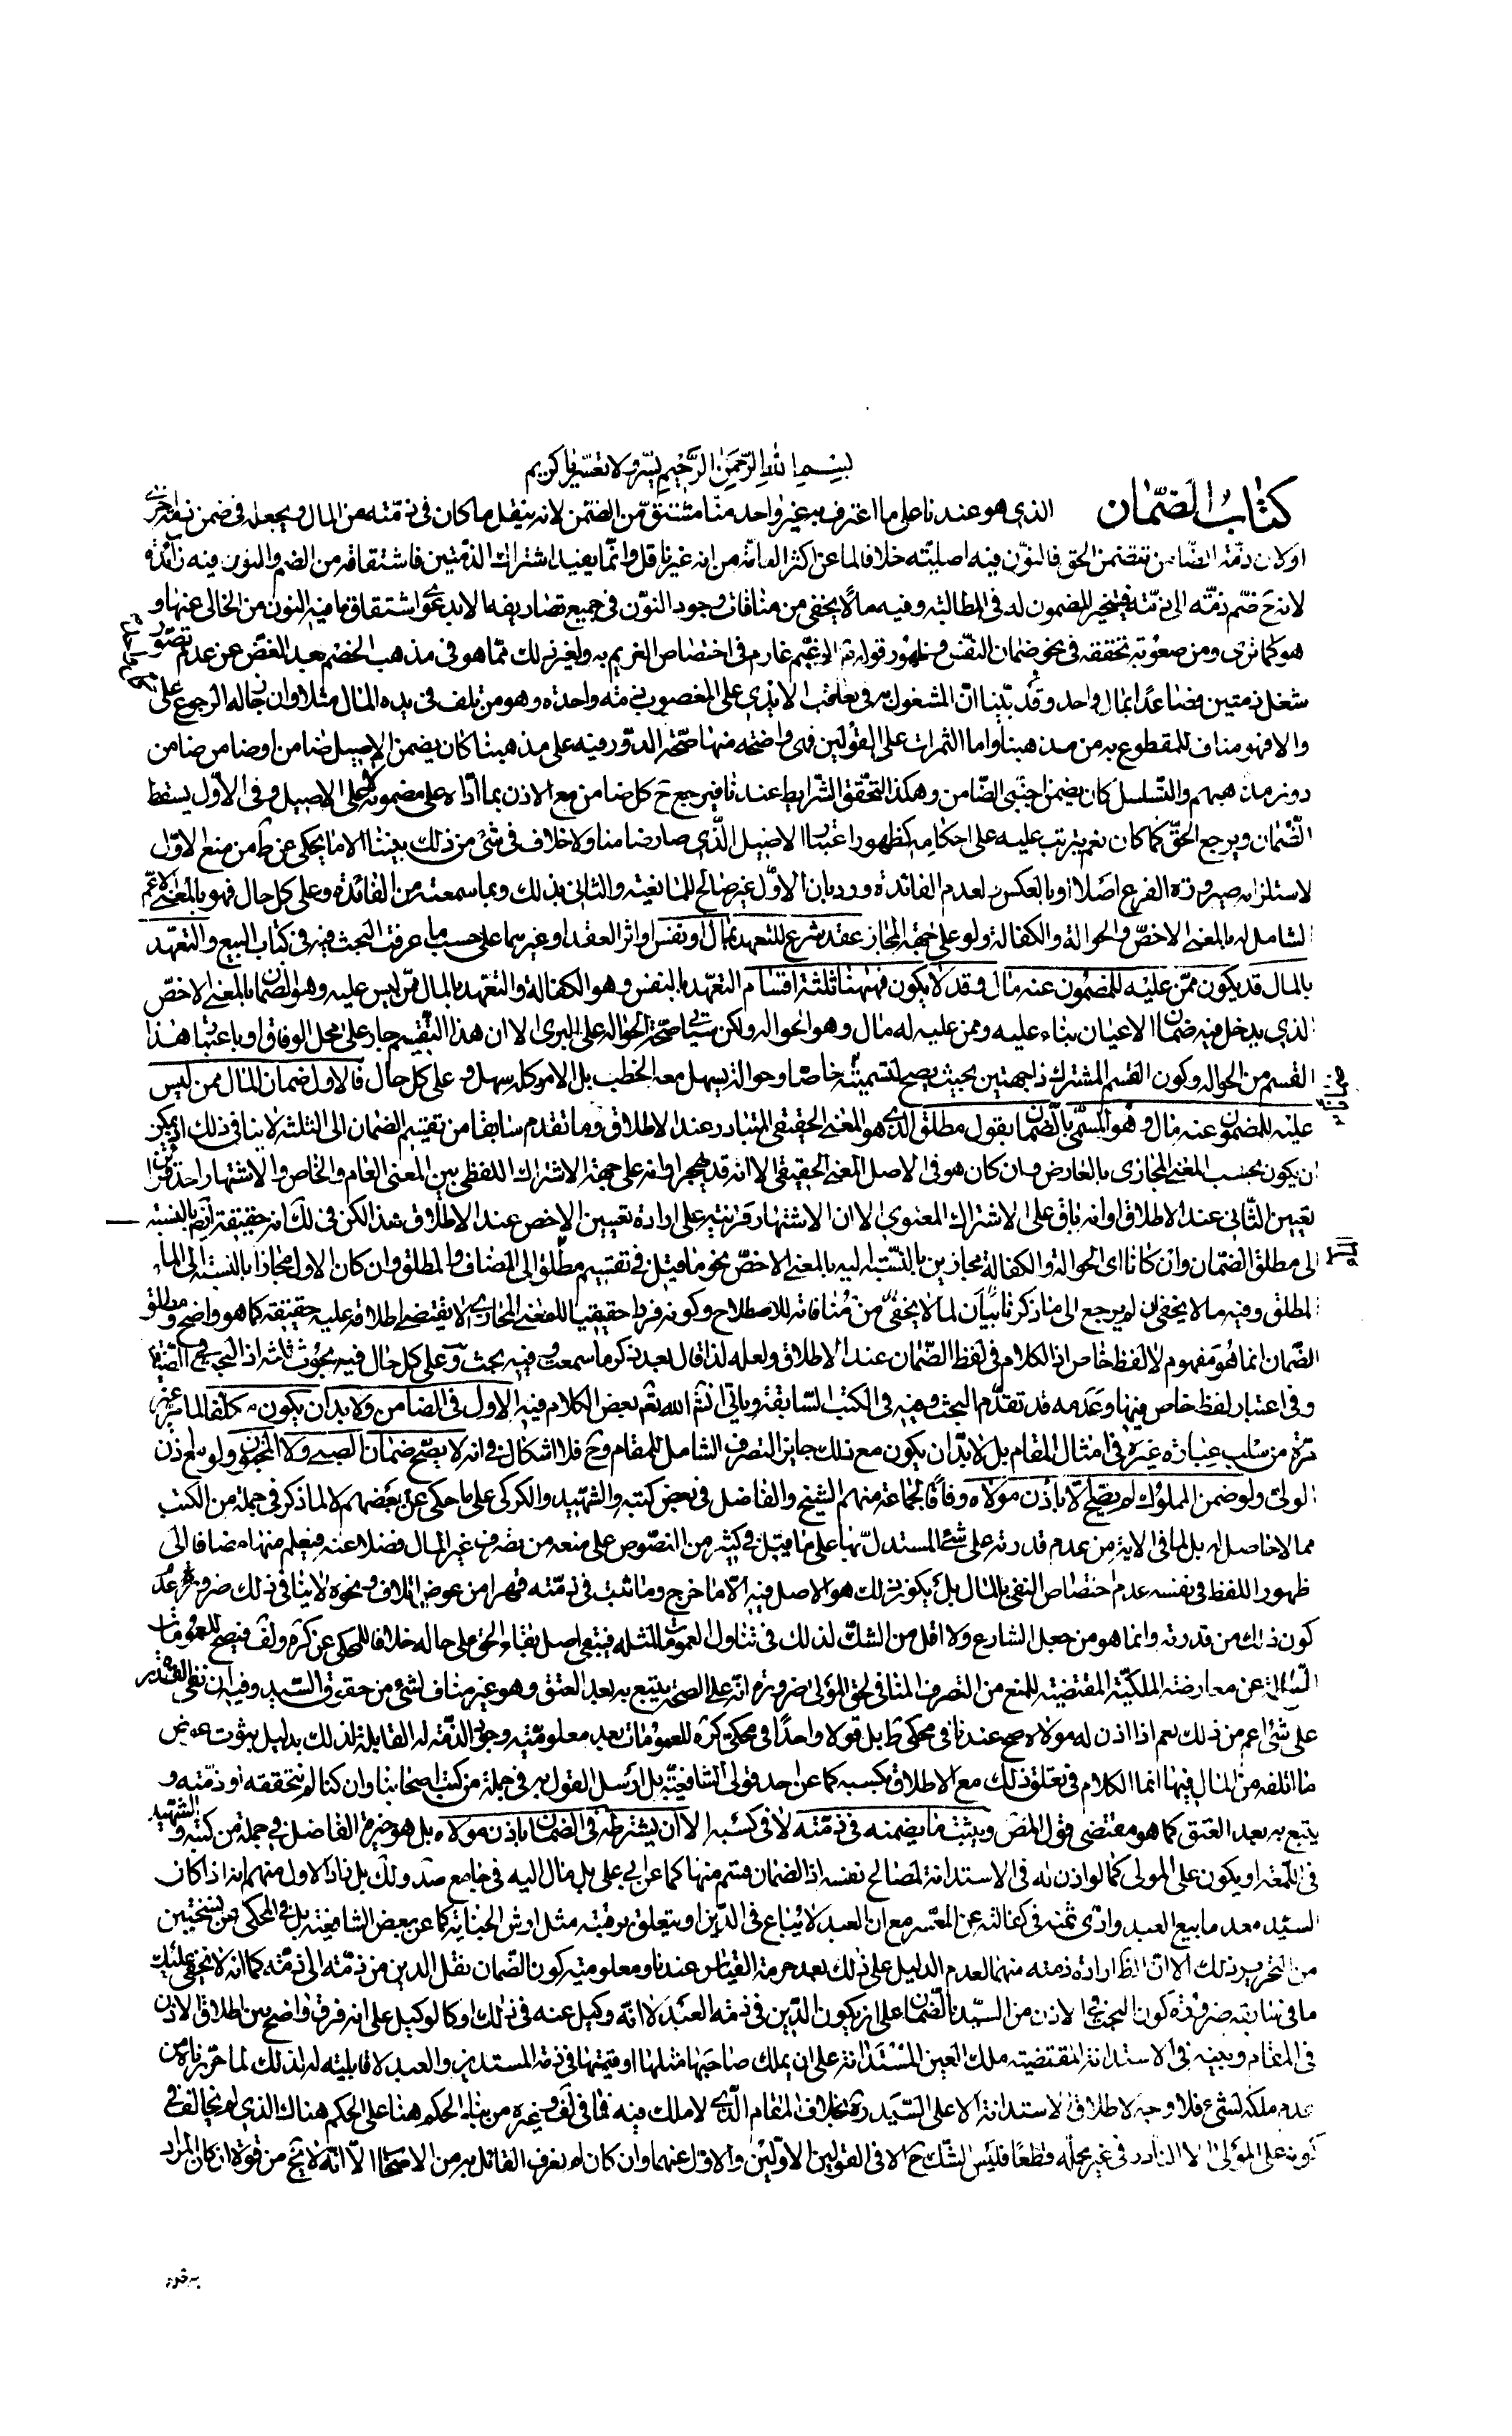 بسم الله الرحمن الرحيم يسر ولا تعسر يا كريم
كتاب الضمان الذي هو عندنا على ما اعترف به غير واحد منا مشتق من الضمن لانه ينقل ما كان في ذمته من المال ويجعله في ضمن ذمة اخرى
او لان ذمة الضامن تتضمن الحق فالنون فيه اصلية خلافا لما عن اكثر العامة من انه غير ناقل وانما يفيد اشتراك الذمتين فاشتقاقه من الضم والنون فيه زائدة
لانه ح ضم ذمته الى ذمته فيتخير المضمون له في المطالبة وفيه ما لا يخفى من منافات وجود النون في جميع تصاريفه الا بدعوى اشتقاق ما فيه النون من الخالى عنها و
هو كما ترى ومن صعوبة تحققه في نحو ضمان النفس وظهور قوله الزعيم غارم في اختصاص الغريم به ولغير ذلك مما هو في مذهب الخصم بعد الغض عن عدم تصور
شغل ذمتين فصاعدا بمال واحد وقد بينا ان المشغول به في تعاقب الايدي على المغصوب ذمة واحدة وهو من تلف في يده المال مثلا وان جاز له الرجوع على
والا فهو مناف للمقطوع به من مذهبنا واما الثمرات على القولين فهى واضحة منها صحة الدور فيه على مذهبنا كان يضمن الاصيل ضامنه او ضامن ضامن
دون مذهبهم والتسلسل كان يضمن اجنبى الضامن وهكذا لتحقق الشرايط عندنا فيرجع ح كل ضامن مع الاذن بما اداه على مضمونه لا على الاصيل وفى الاول يسقط
الضمان ويرجع الحق كما كان نعم يترتب عليه على احكامه كظهور اعسار الاصيل الذي صار ضامنا ولا خلاف في شئ من ذلك بيننا الا ما يحكى عن ط من منع الاول
لاستلزامه صيرورة الفرع اصلا او بالعكس لعدم الفائدة ورد بان الاول غير صالح للمانعية والثانى بذلك وبما سمعته من الفائدة وعلى كل حال فهو بالمعنى الاعم
الشامل له بالمعنى الاخص والحوالة والكفالة ولو على جهة المجاز عقد شرع للتعهد بمال او نفس او اثر العقد او غيرهما على حسب ما عرفت البحث فيه في كتاب البيع والتعهد
بالمال قد يكون ممن عليه للمضمون عنه مال وقد لا يكون فههنا ثلثة اقسام التعهد بالنفس وهو الكفالة والتعهد بالمال ممن ليس عليه وهو الضمان بالمعنى الاخص
الذي يدخل فيه ضمان الاعيان بناء عليه وممن عليه له مال وهو الحوالة ولكن ستأتي صحة الحوالة على البرى الا ان هذا التقسيم جار على محل الوفاق او باعتبار هذا
القسم من الحوالة وكون القسم المشترك ذا جهتين بحيث يصح تسميته خاصا وحوالة يسهل معه الخطب بل الامر كله سهل وعلى كل حال فالاول ضمان المال ممن ليس
عليه للمضمون عنه مال وهو المسمى بالضمان بقول مطلق الذي هو المعنى الحقيقى المتبادر عند الاطلاق وما تقدم سابقا من تقسيم الضمان الى الثلثة لا ينافى ذلك اذ يمكن
ان يكون بحسب المعنى المجازى بالعارض وان كان هو في الاصل المعنى الحقيقى الا انه قد هجر او انه على جهة الاشتراك اللفظى بين المعنى العام والخاص والاشتهار احد قرائن
تعيين الثانى عند الاطلاق او انه باق على الاشتراك المعنوى الا ان الاشتهار قرينة على ارادة تعيين الاخص عند الاطلاق هذا لكن في لك انه حقيقة ايضا بالنسبة
الى مطلق الضمان وان كانا اى الحوالة والكفالة مجازين بالنسبة اليه بالمعنى الاخص نحو ما قيل في تقسيم مطلق الى المضاف والمطلق وان كان الاول مجازا بالنسبة الى الماء
المطلق وفيه ما لا يخفى ان لم يرجع الى ما ذكرناه بيان لما لا يخفى من منافاته للاصطلاح وكونه فردا حقيقيا للمعنى المجازى لا يقتضى اطلاقه عليه حقيقة كما هو واضح ومطلق
الضمان انما هو مفهوم لا لفظ خاص انما الكلام في لفظ الضمان عند الاطلاق ولعله لذا قال بعد ذكر ما سمعت وفيه بحث وعلى كل حال فيه بحوث ثلثة اذ البحث في الصيغة
وفى اعتبار لفظ خاص فيها وعدمه قد تقدم البحث فيه في الكتب السابقة ويأتى انشاء الله نعم بعض الكلام فيه الاول في الضامن ولا بد ان يكون مكلفا لما عرفته غير
مرة من سلب عبارة غيره في امثال المقام بل لا بد ان يكون مع ذلك جايز التصرف الشامل للمقام وح فلا اشكال في انه لا يصح ضمان الصبى ولا المجنون ولو مع اذن
الولى ولو ضمن المملوك لم يصح الا باذن مولاه وفاقا لجماعة منهم الشيخ والفاضل في بعض كتبه والشهيد والكركى على ما حكى عن بعضهم لا لما ذكر في جملة من الكتب
مما لا حاصل له بل لما في الاية من عدم قدرته على شئ المستدل بها على ما قيل في كثير من النصوص على منعه من تصرف غير المال فضلا عنه فيعلم منها مضافا الى
ظهور اللفظ في نفسه عدم اختصاص النفى بالمال بل يكون ذلك هو الاصل فيه الا ما خرج وما ثبت في ذمته قهرا من عوض اتلاف ونحوه لا ينافى ذلك ضرورة عدم
كون ذلك من قدرته وانما هو من جعل الشارع ولا اقل من الشك لذلك في تناول العمومات لمثله فيبقى اصل بقاء الحق على حاله خلافا للمحكى عن كره ولف فيصح للعمومات
السالمة عن معارضة الملكية المقتضية للمنع من التصرف المنافى لحق المولى ضرورة انه على الصحة يتبع به بعد العتق وهو غير مناف لشئ من حقوق السيد وفيه ان نفى القدرة
على شئ اعم من ذلك نعم اذا اذن له مولاه صح عندنا في محكى ط بل قولا واحدا في محكى كره للعمومات بعد معلومية وجود الذمة له القابلة لذلك بدليل ثبوت عوض
ما اتلفه من المال فيها انما الكلام في تعلق ذلك مع الاطلاق بكسبه كما عن احد قولى الشافعية بل ارسل القول به في جملة من كتب اصحابنا وان كنا لم نتحققه او ذمته و
يتبع به بعد العتق كما هو مقتضى قول المص ويثبت ما يضمنه في ذمته لا في كسبه الا ان يشترطه في الضمان باذن مولاه بل هو خيرة الفاضل في جملة من كتبه والشهيد
في اللمعة او يكون على المولى كما لو اذن له في الاستدانة لمصالح نفسه اذ الضمان قسم منها كما عن ابى على بل مال اليه في جامع صد ولك بل زاد الاول منهم انه اذا كان
السيد معدما بيع العبد وادى ثمنه في كفالته عن المعسر مع ان العبد لا يباع في الدين او يتعلق برقبته مثل ارش الجناية كما عن بعض الشافعية بل في المحكى عن نسختين
من التحرير ذلك الا ان الظ ارادة ذمته منهما لعدم الدليل على ذلك بعد حرمة القياس عندنا ومعلومية كون الضمان نقل الدين من ذمته الى ذمته كما انه لا يخفى عليك
ما في سابقه ضرورة كون البحث في الاذن من السيد بالضمان على ان يكون الدين في ذمة العبد لا انه وكيل عنه في ذلك او كالوكيل على انه فرق واضح بين اطلاق الاذن
في المقام وبينه في الاستدانة المقتضية ملك العين المستدانة على ان يملك صاحبها مثلها او قيمتها في ذمة المستدين والعبد لا قابلية له لذلك لما حررناه من
عدم ملكه لشئ فلا وجه لاطلاق الاستدانة الا على السيد بخلاف المقام الذي لا ملك فيه فما في لف وغيره من بناء الحكم هنا على الحكم هناك الذي لم يخالف في
كونه على المولى الا النادر في غير محله قطعا فليس الشك ح الا في القولين الاولين والاول منهما وان كان لم نعرف القائل به من الاصحاب الا انه لا يخ من قوة ان كان المراد
به قدرة